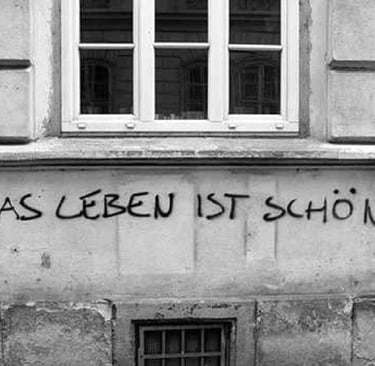 AS LEBEN IST SCHÖN